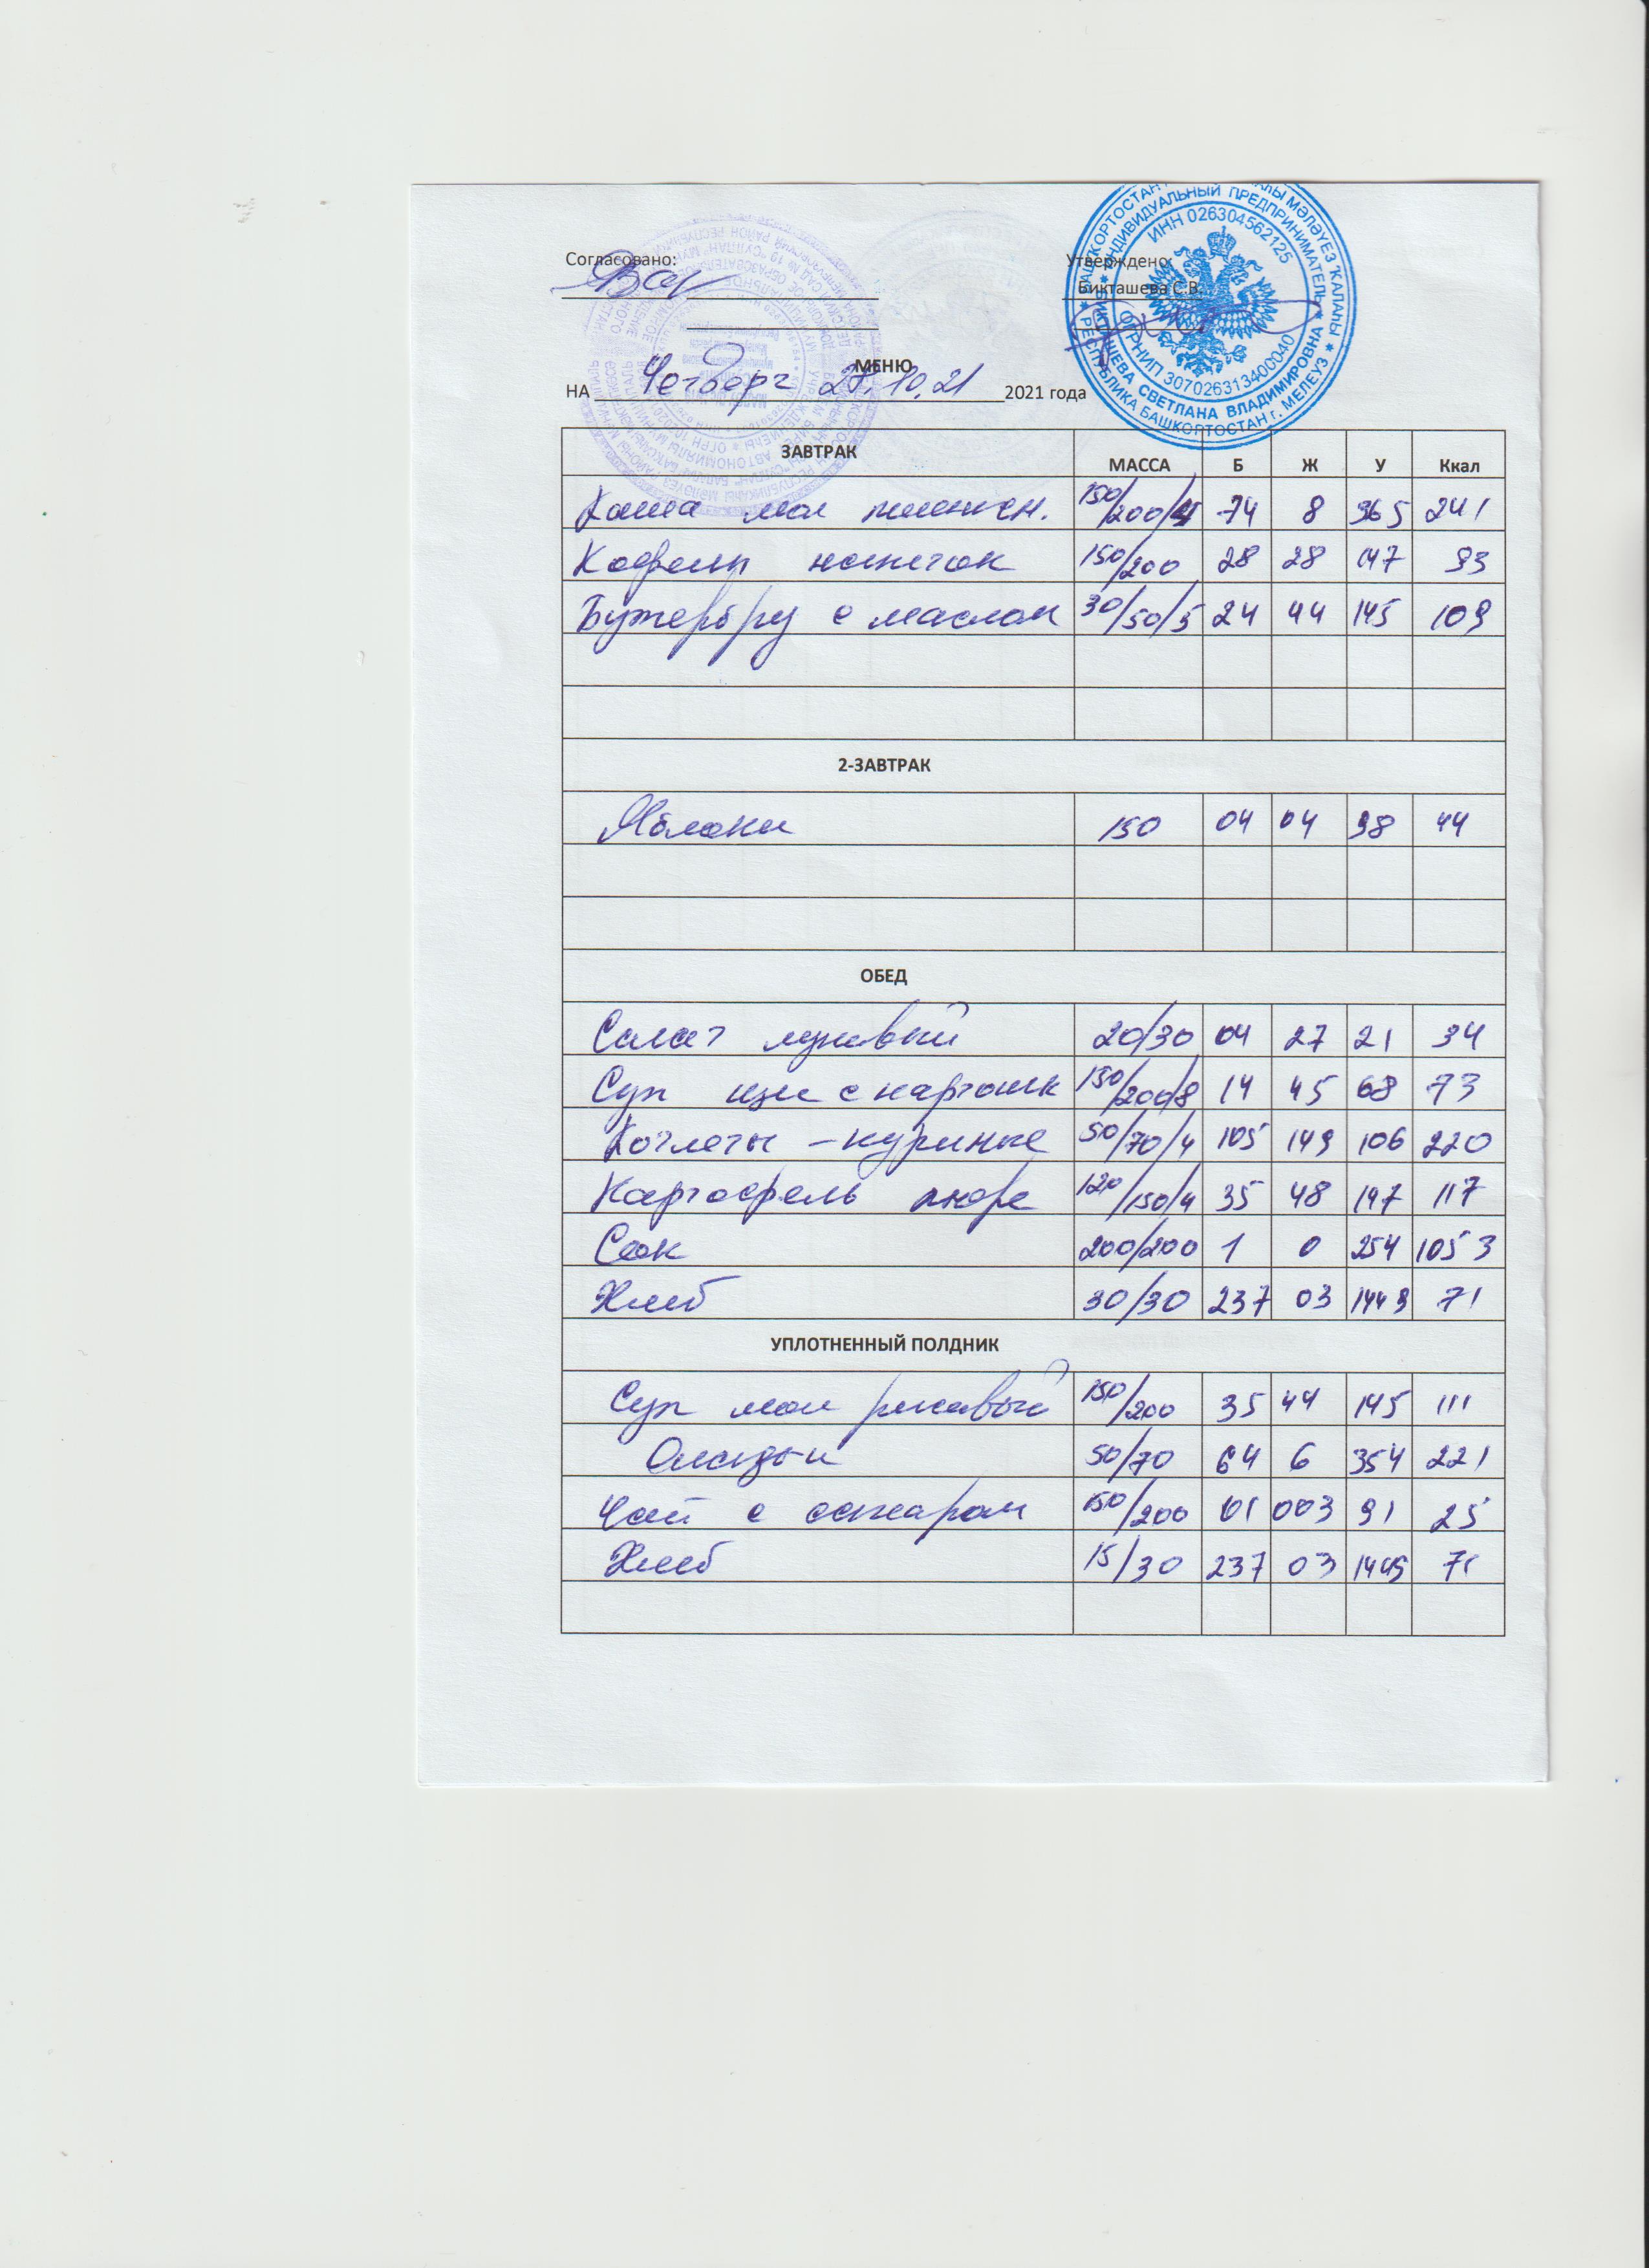 Согласовано:
Утверждено:
Бикташева С.В.
БАШКОРТОСТАН
ИНДИВИДУАЛЬНЫЙ ПРЕДПРИНИМАТЕЛЬ
ИНН 026304562125
ОГРНИП 307026313400040
СВЕТЛАНА ВЛАДИМИРОВНА
РЕСПУБЛИКА БАШКОРТОСТАН г. МЕЛЕУЗ
МЕНЮ
НА Четверг 10.21 2021 года
ЗАВТРАК МАССА Б Ж У Ккал
Каша мол пшен. 150/200/4 74 8 365 241
Кофейн напиток 150/200 28 28 147 93
Бутербру с маслом 30/50/5 24 44 145 109
2-ЗАВТРАК
Яблоки 150 04 04 98 44
ОБЕД
Салат луковый 20/30 04 27 21 34
Суп щи с картошк 150/200/8 14 45 68 73
Котлеты - куриные 50/70/4 105 149 106 220
Картофель пюре 120/150/4 35 48 197 117
Сок 200/200 1 0 254 1053
Хлеб 30/30 237 03 1449 71
УПЛОТНЕННЫЙ ПОЛДНИК
Суп мол рисовый 150/200 35 44 145 111
Оладьи 50/70 64 6 354 221
Чай с сахаром 150/200 01 003 91 25
Хлеб 15/30 237 03 1449 71